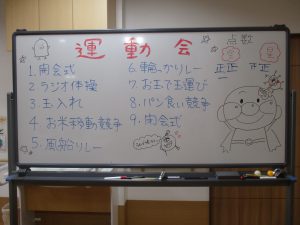 運動会
点数
1. 開会式
2. ラジオ体操
3. 玉入れ
4. お米移動競争
5. 風船リレー
6. 輪っかリレー
7. お玉で玉運び
8. パン食い競争
9. 閉会式
白
正正
正正